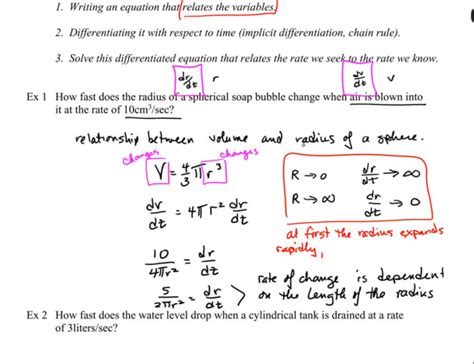 1. Writing an equation that relates the variables.
2. Differentiating it with respect to time (implicit differentiation, chain rule).
3. Solve this differentiated equation that relates the rate we seek to the rate we know.
dr/dt r dv/dt v
Ex 1 How fast does the radius of a spherical soap bubble change when air is blown into
it at the rate of 10cm³/sec?
relationship between volume and radius of a sphere.
changes changes
V = 4/3 π r³
R → 0 dr/dt → ∞
dv/dt = 4πr² dr/dt
R → ∞ dr/dt → 0
at first the radius expands
rapidly,
10/4πr² = dr/dt
5/2πr² = dr/dt
rate of change is dependent
on the length of the radius
Ex 2 How fast does the water level drop when a cylindrical tank is drained at a rate
of 3liters/sec?